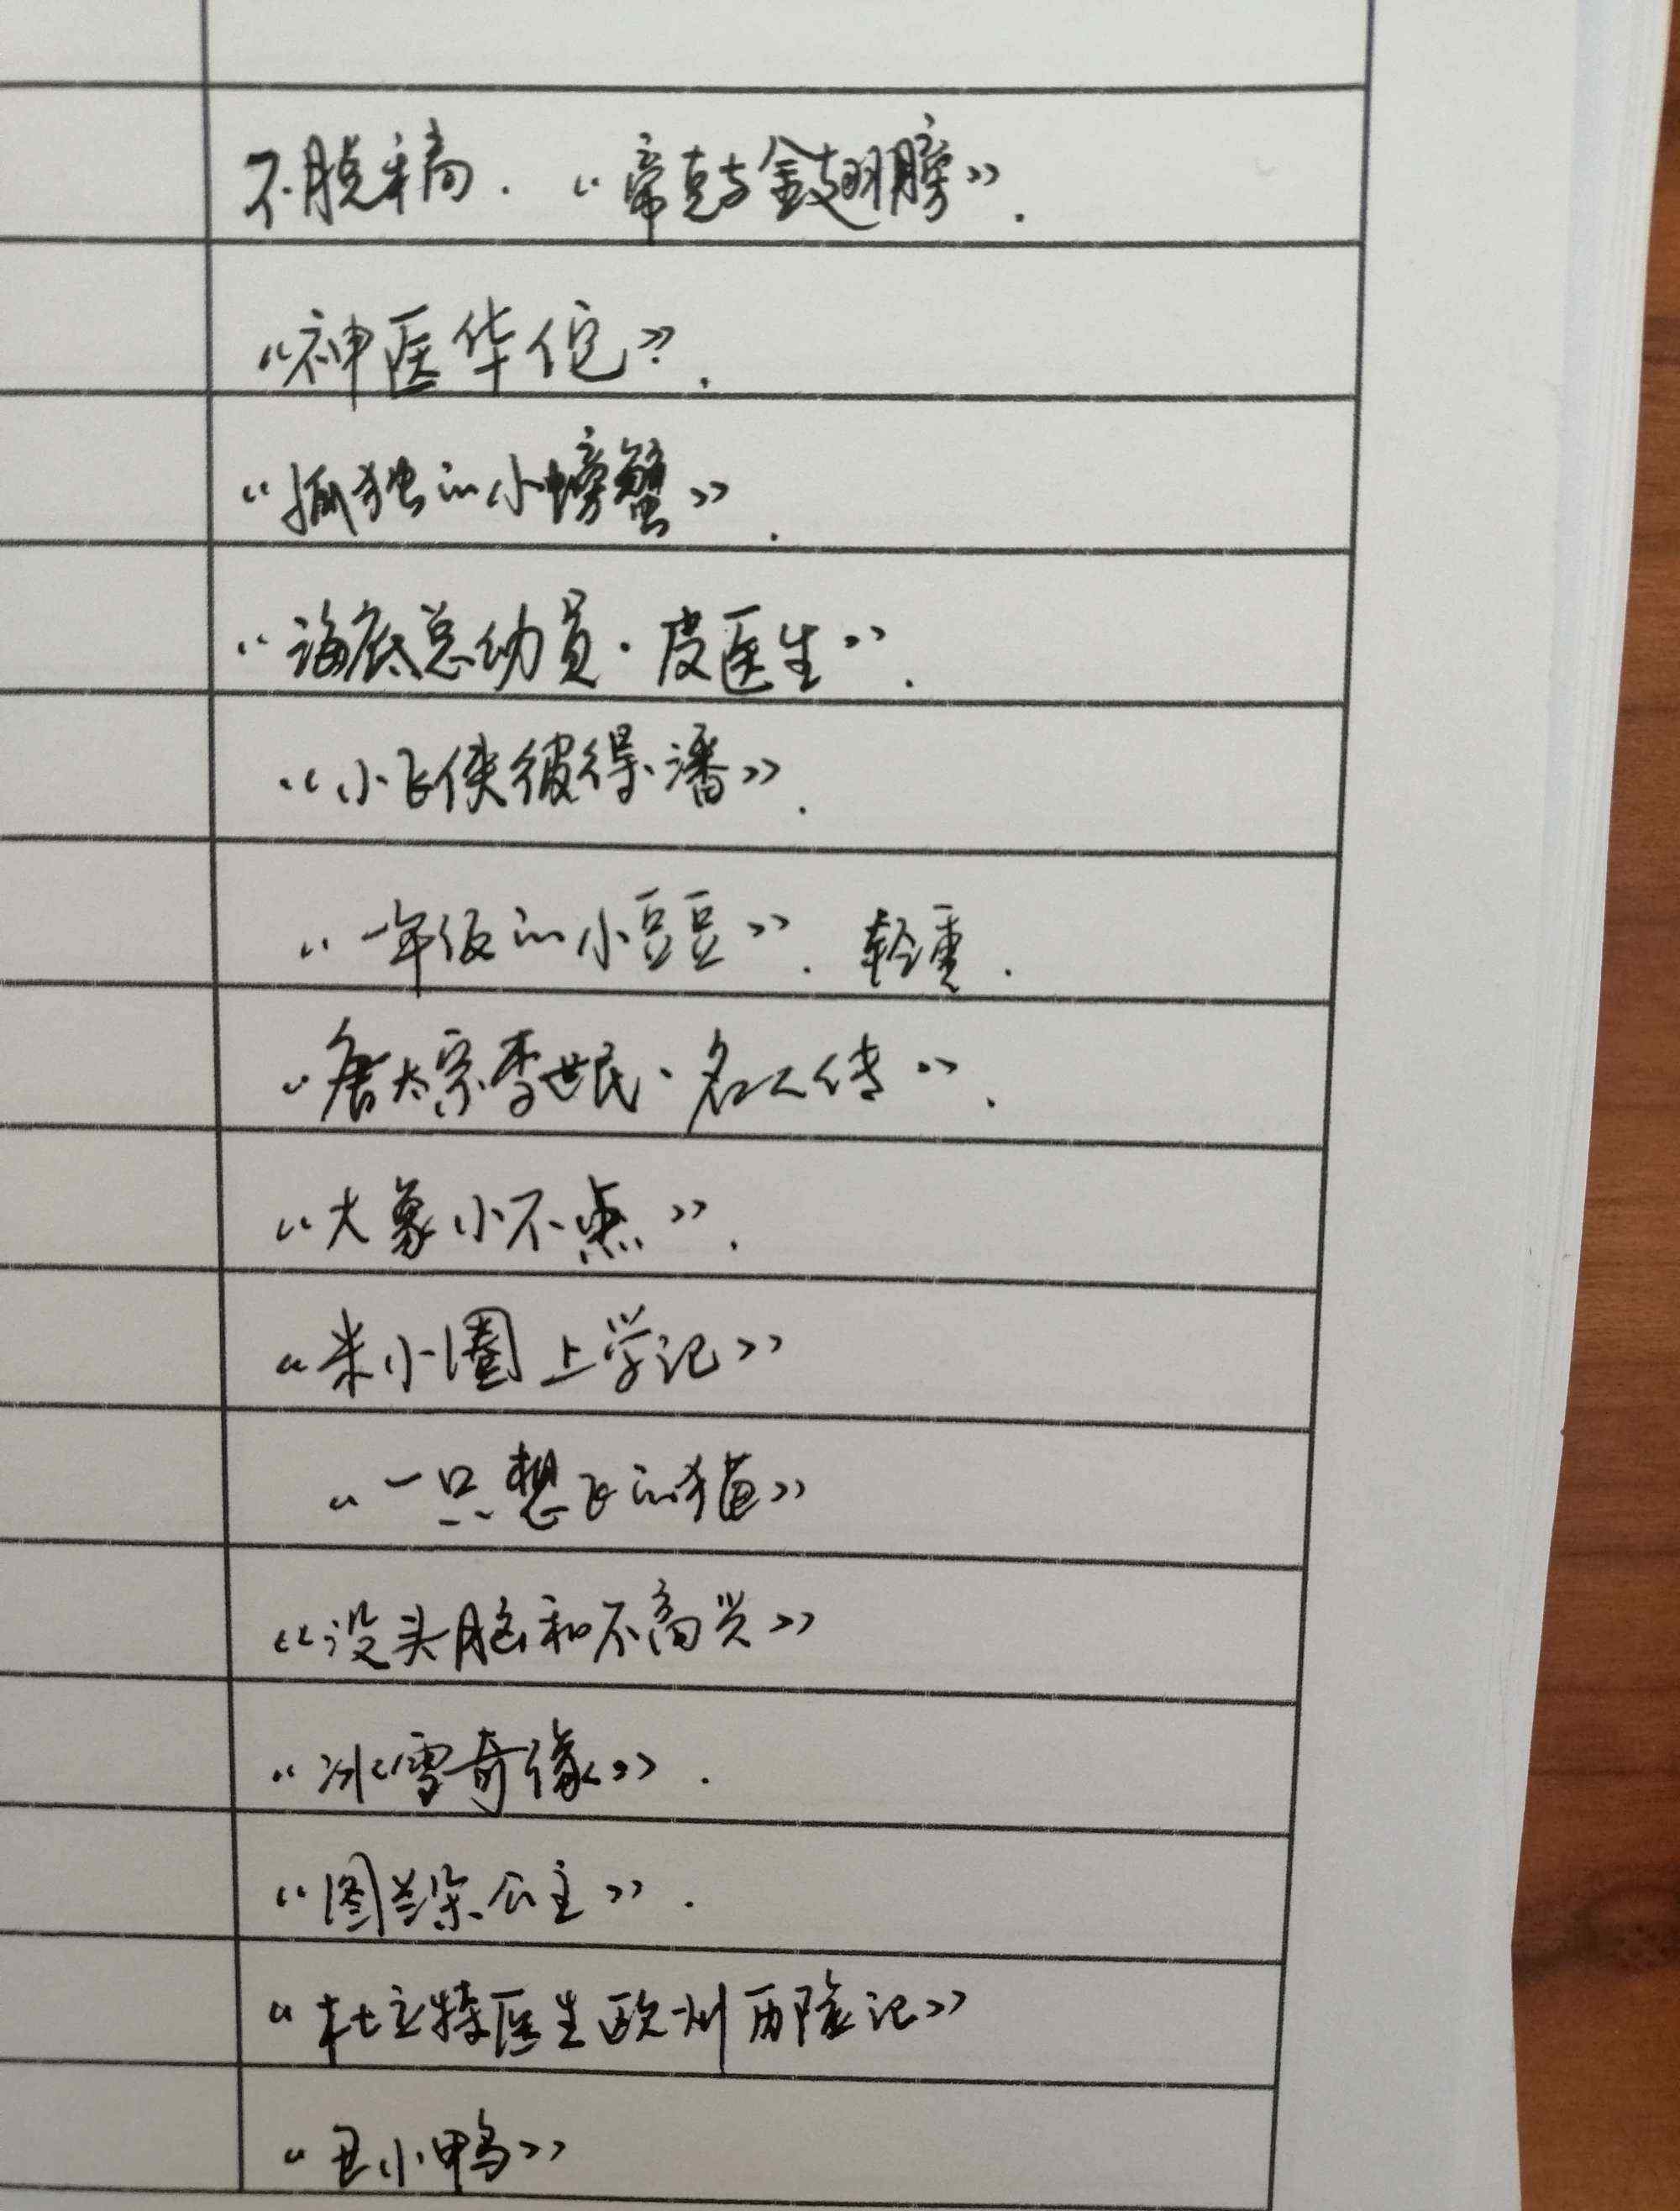 不脱稿.《帝克与金翅膀》.
《神医华佗》.
《孤独的小螃蟹》.
《海底总动员·皮医生》.
《小飞侠彼得·潘》.
《一年级的小豆豆》. 轻重.
《唐太宗李世民·名人传》.
《大象小不点》.
《米小圈上学记》
《一只想飞的猫》
《没头脑和不高兴》
《冰雪奇缘》.
《图兰朵公主》.
《杜立特医生欧洲历险记》
《丑小鸭》